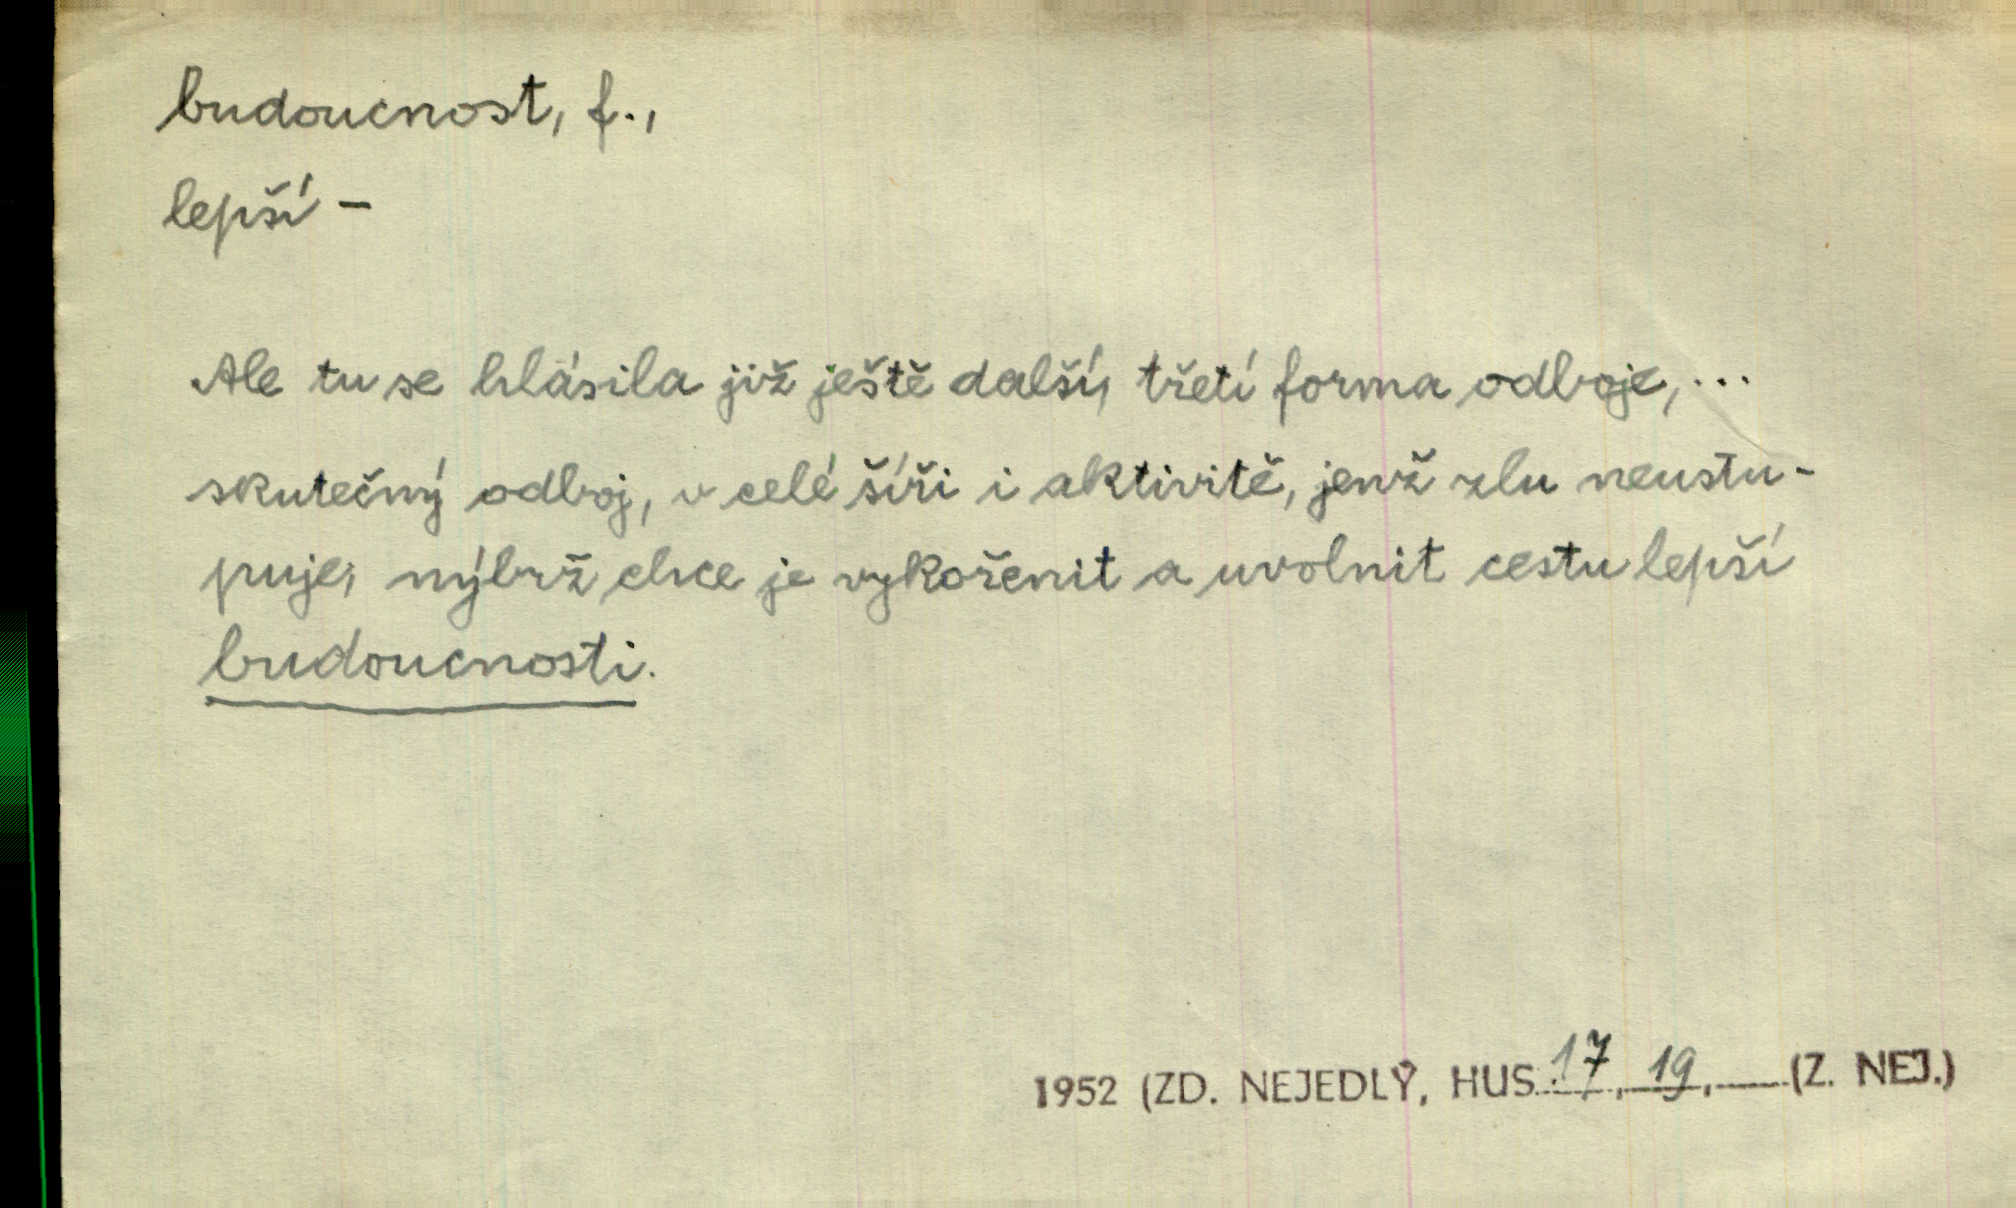 budoucnost, f.,
lepší –
Ale tu se hlásila již ještě další, třetí forma odboje, ...
skutečný odboj, v celé šíři i aktivitě, jenž zlu neustu-
puje, nýbrž chce je vykořenit a uvolnit cestu lepší
budoucnosti.
1952 (ZD. NEJEDLÝ, HUS 17, 19, (Z. NEJ.)